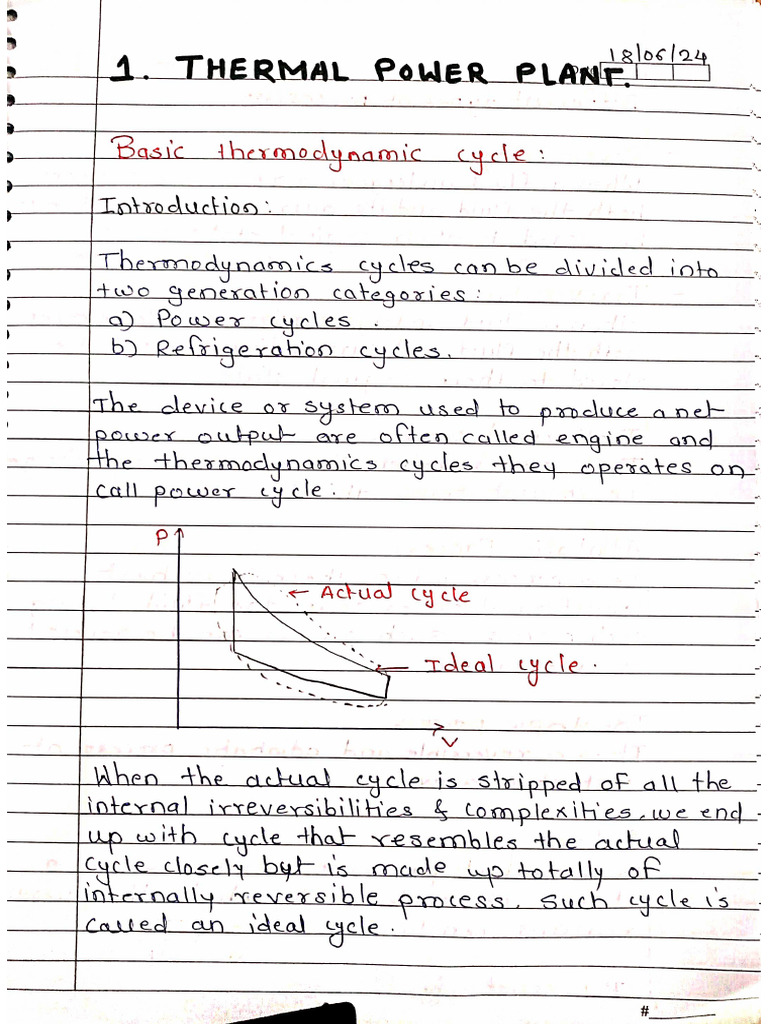 18/06/24
1. THERMAL POWER PLANT.
Basic thermodynamic cycle:
Introduction:
Thermodynamics cycles can be divided into
two generation categories:
a) Power cycles.
b) Refrigeration cycles.
The device or system used to produce a net
power output are often called engine and
the thermodynamics cycles they operates on
call power cycle.
P
← Actual cycle
← Ideal cycle.
V
When the actual cycle is stripped of all the
internal irreversibilities & complexities, we end
up with cycle that resembles the actual
cycle closely but is made up totally of
internally reversible process. Such cycle is
called an ideal cycle.
#